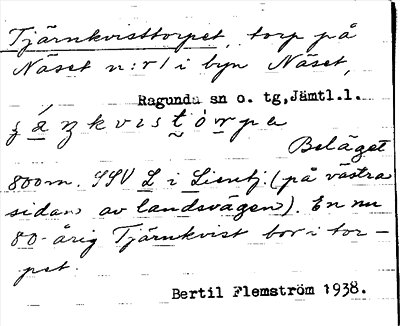 Tjärnkvisttorpet, torp på
Näset n:r 1 i byn Näset,
Ragunda sn o. tg, Jämtl.l.
kvistórpa
Beläget
800 m. SSV L i (på västra
sidan av landsvägen). En nu
80-årig Tjärnkvist bor i tor-
pet.
Bertil Flemström 1938.